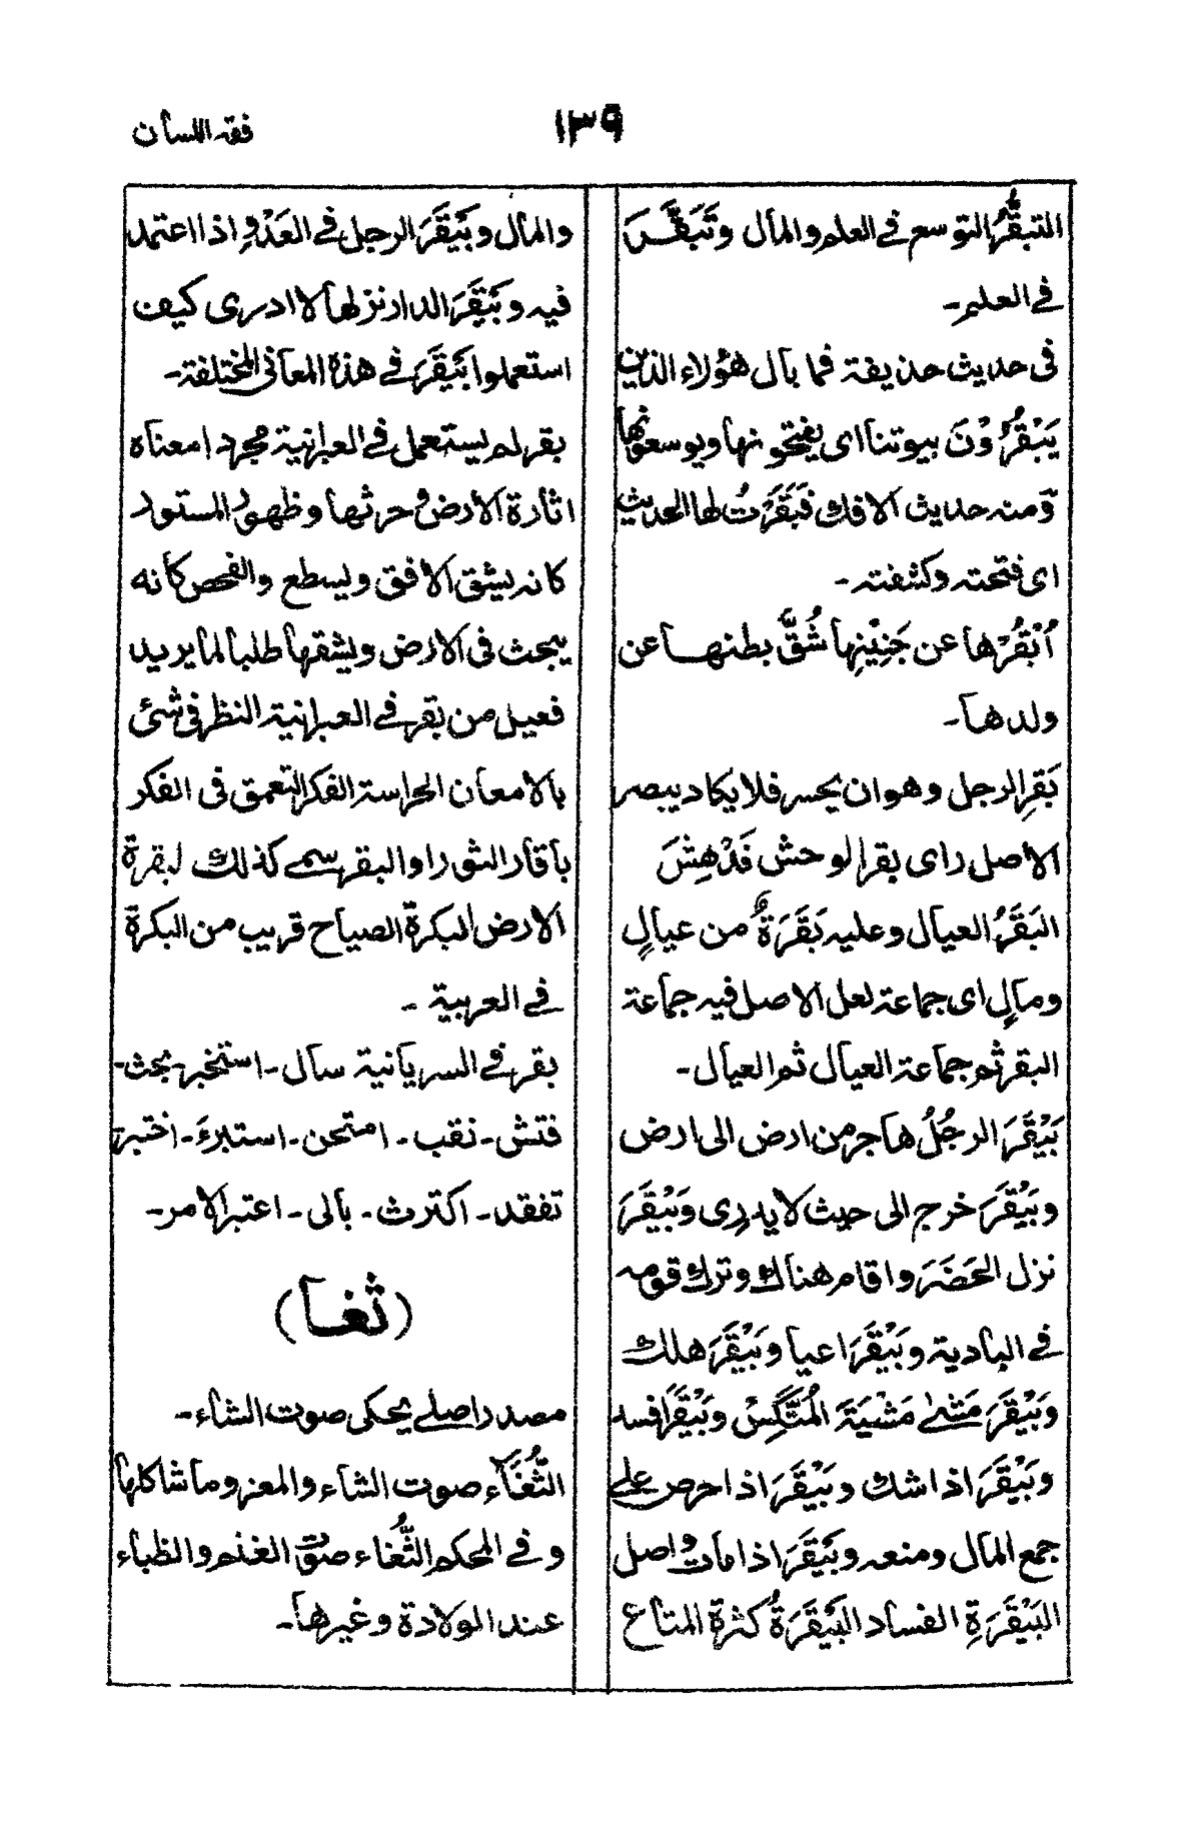 فقه اللسان
١٣٩
التبقُّرُ التوسع في العلم والمال وتَبَقَّرَ
في العلم۔
في حديث حذيفة فما بال هؤلاء الذين
يَبْقُرُوْنَ بيوتنا اى يفتحونها ويوسعونها
ومنه حديث الافك فَبَقَرَتُ لها الحديث
اى فتحته وكشفته۔
اُبْقُرْها عن جَنِيْنِها شُقَّ بطنها عن
ولدها۔
بَقِرَ الرجل وهو ان يحسر فلا يكاد يبصر
الاصل راى بقر الوحش فَدَهِشَ
البَقَرُ العيال وعليه بَقَرَةٌ من عيالٍ
ومالٍ اى جماعة لعل الاصل فيه جماعة
البقر ثم جماعة العيال ثم العيال۔
بَيْقَرَ الرجُلُ هاجر من ارض الى ارض
وبَيْقَرَ خرج الى حيث لا يدرى وبَيْقَرَ
نزل الحَضَرَ واقام هناك وترك قومه
في البادية وبَيْقَرَ اعيا وبَيْقَرَ هلك
وبَيْقَرَ مَشٰى مَشْيَةَ المُتَّكِسِ وبَيْقَرَ افسد
وبَيْقَرَ اذا شك وبَيْقَرَ اذا حرص على
جمع المال ومنعه وبَيْقَرَ اذا مات واصل
البَيْقَرَةِ الفساد البَيْقَرَةُ كثرة المتاع
والمال وبَيْقَرَ الرجل في العَدْوِ اذا اعتمد
فيه وبَيْقَرَ الدار نزلها لا ادرى كيف
استعملوا بَيْقَرَ في هذه المعاني المختلفة۔
بقر لم يستعمل في العبرانية مجردا معناه
اثارة الارض و حرثها وظهور المستور
كانه يشق الافق ويسطع والفحص كانه
يبحث فى الارض ويشقها طلبا لما يريد
فعيل من بقر في العبرانية النظر فى شئ
بالامعان الحراسة الفكر التعمق فى الفكر
باقار الثور او البقر سمى كذلك لبقرة
الارض البكرة الصياح قريب من البكرة
في العربية۔
بقر في السريانية سال۔ استخبر۔ بحث۔
فتش۔ نقب۔ امتحن۔ استبرءَ۔ اختبر
تفقد۔ اكترث۔ بالى۔ اعتبر الامر۔
(ثغا)
مصدر اصلى يحكى صوت الشاء۔
الثُّغَآء صوت الشاء والمعز وما شاكلها
وفي المحكم الثُّغاء صوت الغنم والظباء
عند الولادة وغيرها۔